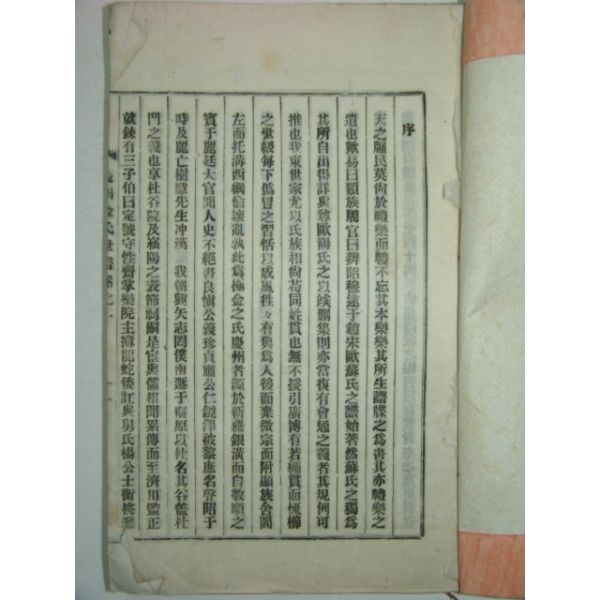 序
天之牖民莫尙於禮樂而禮不忘其本樂樂其所生譜牒之爲書其亦禮樂之
遺也歟易曰類族周官曰辨昭穆逮于趙宋歐蘇氏之譜始著然蘇氏之獨爲
其所自出得詳與尊歐陽氏之以俟刪集則亦當復有會通之義者其規例可
推也我東世家尤以氏族相尙苟同姓貫也無不援引廣博有若繩貫而櫛
之世級每下僞冒之習恬以成風徃々有與爲人後而棄微宗而附顯族舍闊
左而托溝西綱倫壞亂孰此爲極金之氏慶州者源於新羅銀潢而自敬順之
賓于麗廷大官聞人史不絶書良愼公義珍貞肅公仁鏡澤被黎庶名聲昭于
時及麗亡樹隱先生冲漢 我朝興矢志罔僕南遯于 原以社名其谷蓋杜
門之義也享杜谷院及嶺陽之表節祠嗣是宦與儒相聞累傳而至濟用監正
就鍊有三子伯曰定號守性齋掌樂院主簿龍蛇倭訌與舅氏楊公士衡桃灘
金氏世譜卷之一